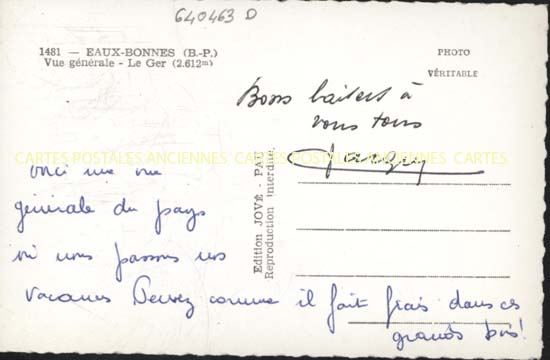 640463 D
1481 — EAUX-BONNES (B.-P.)
Vue générale - Le Ger (2.612m)
PHOTO
VÉRITABLE
Bons baisers à
vous tous
CARTES POSTALES ANCIENNES CARTES POSTALES ANCIENNES CARTES
Edition JOVÉ - PAU
Reproduction interdite.
Voici une vue
générale du pays
où nous passons nos
vacances Pensez comme il fait frais dans ces
grands bois!